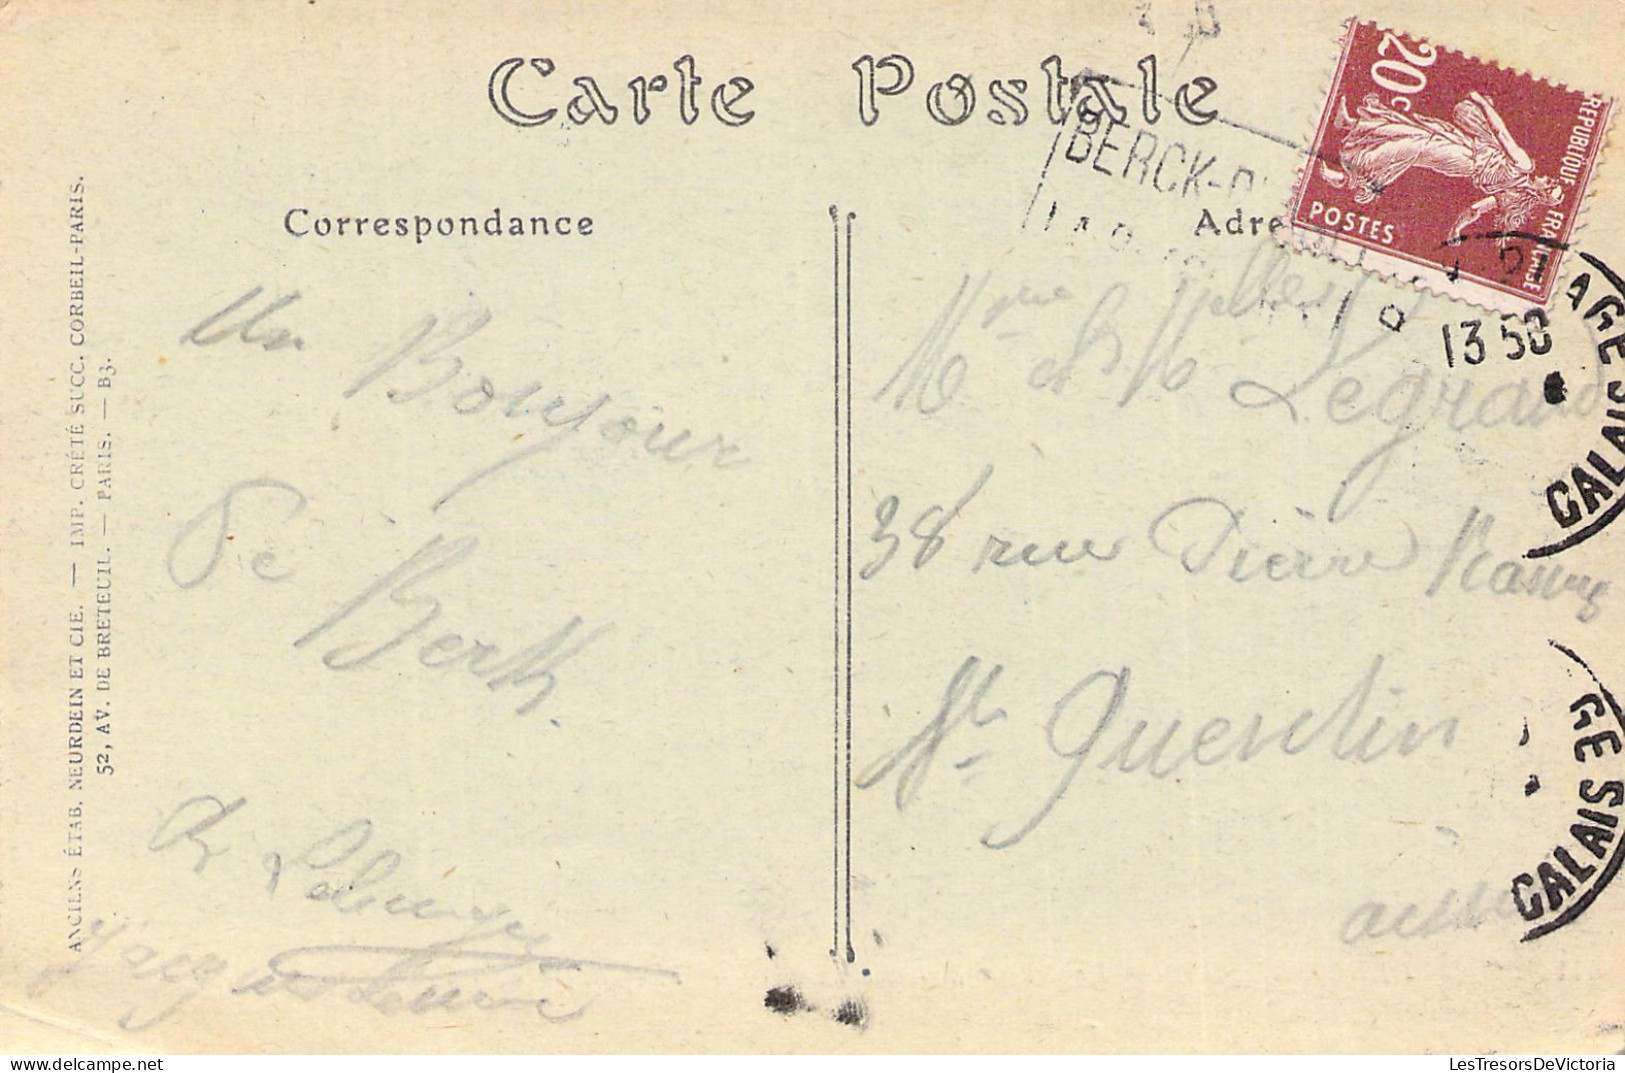 Carte Postale
Correspondance
Adre
ANCIENS ÉTAB. NEURDEIN ET CIE. — IMP. CRÉTÉ SUCC. CORBEIL-PARIS.
52, AV. DE BRETEUIL. — PARIS. — B3.
Un Bonjour
De
Berck
Jacques
Mme
Legrand
38 rue Pierre Ramus
St Quentin
aisne
20c
POSTES
REPUBLIQUE FRANÇAISE
BERCK-P
13 50
CALAIS
CALAIS
LesTresorsDeVictoria